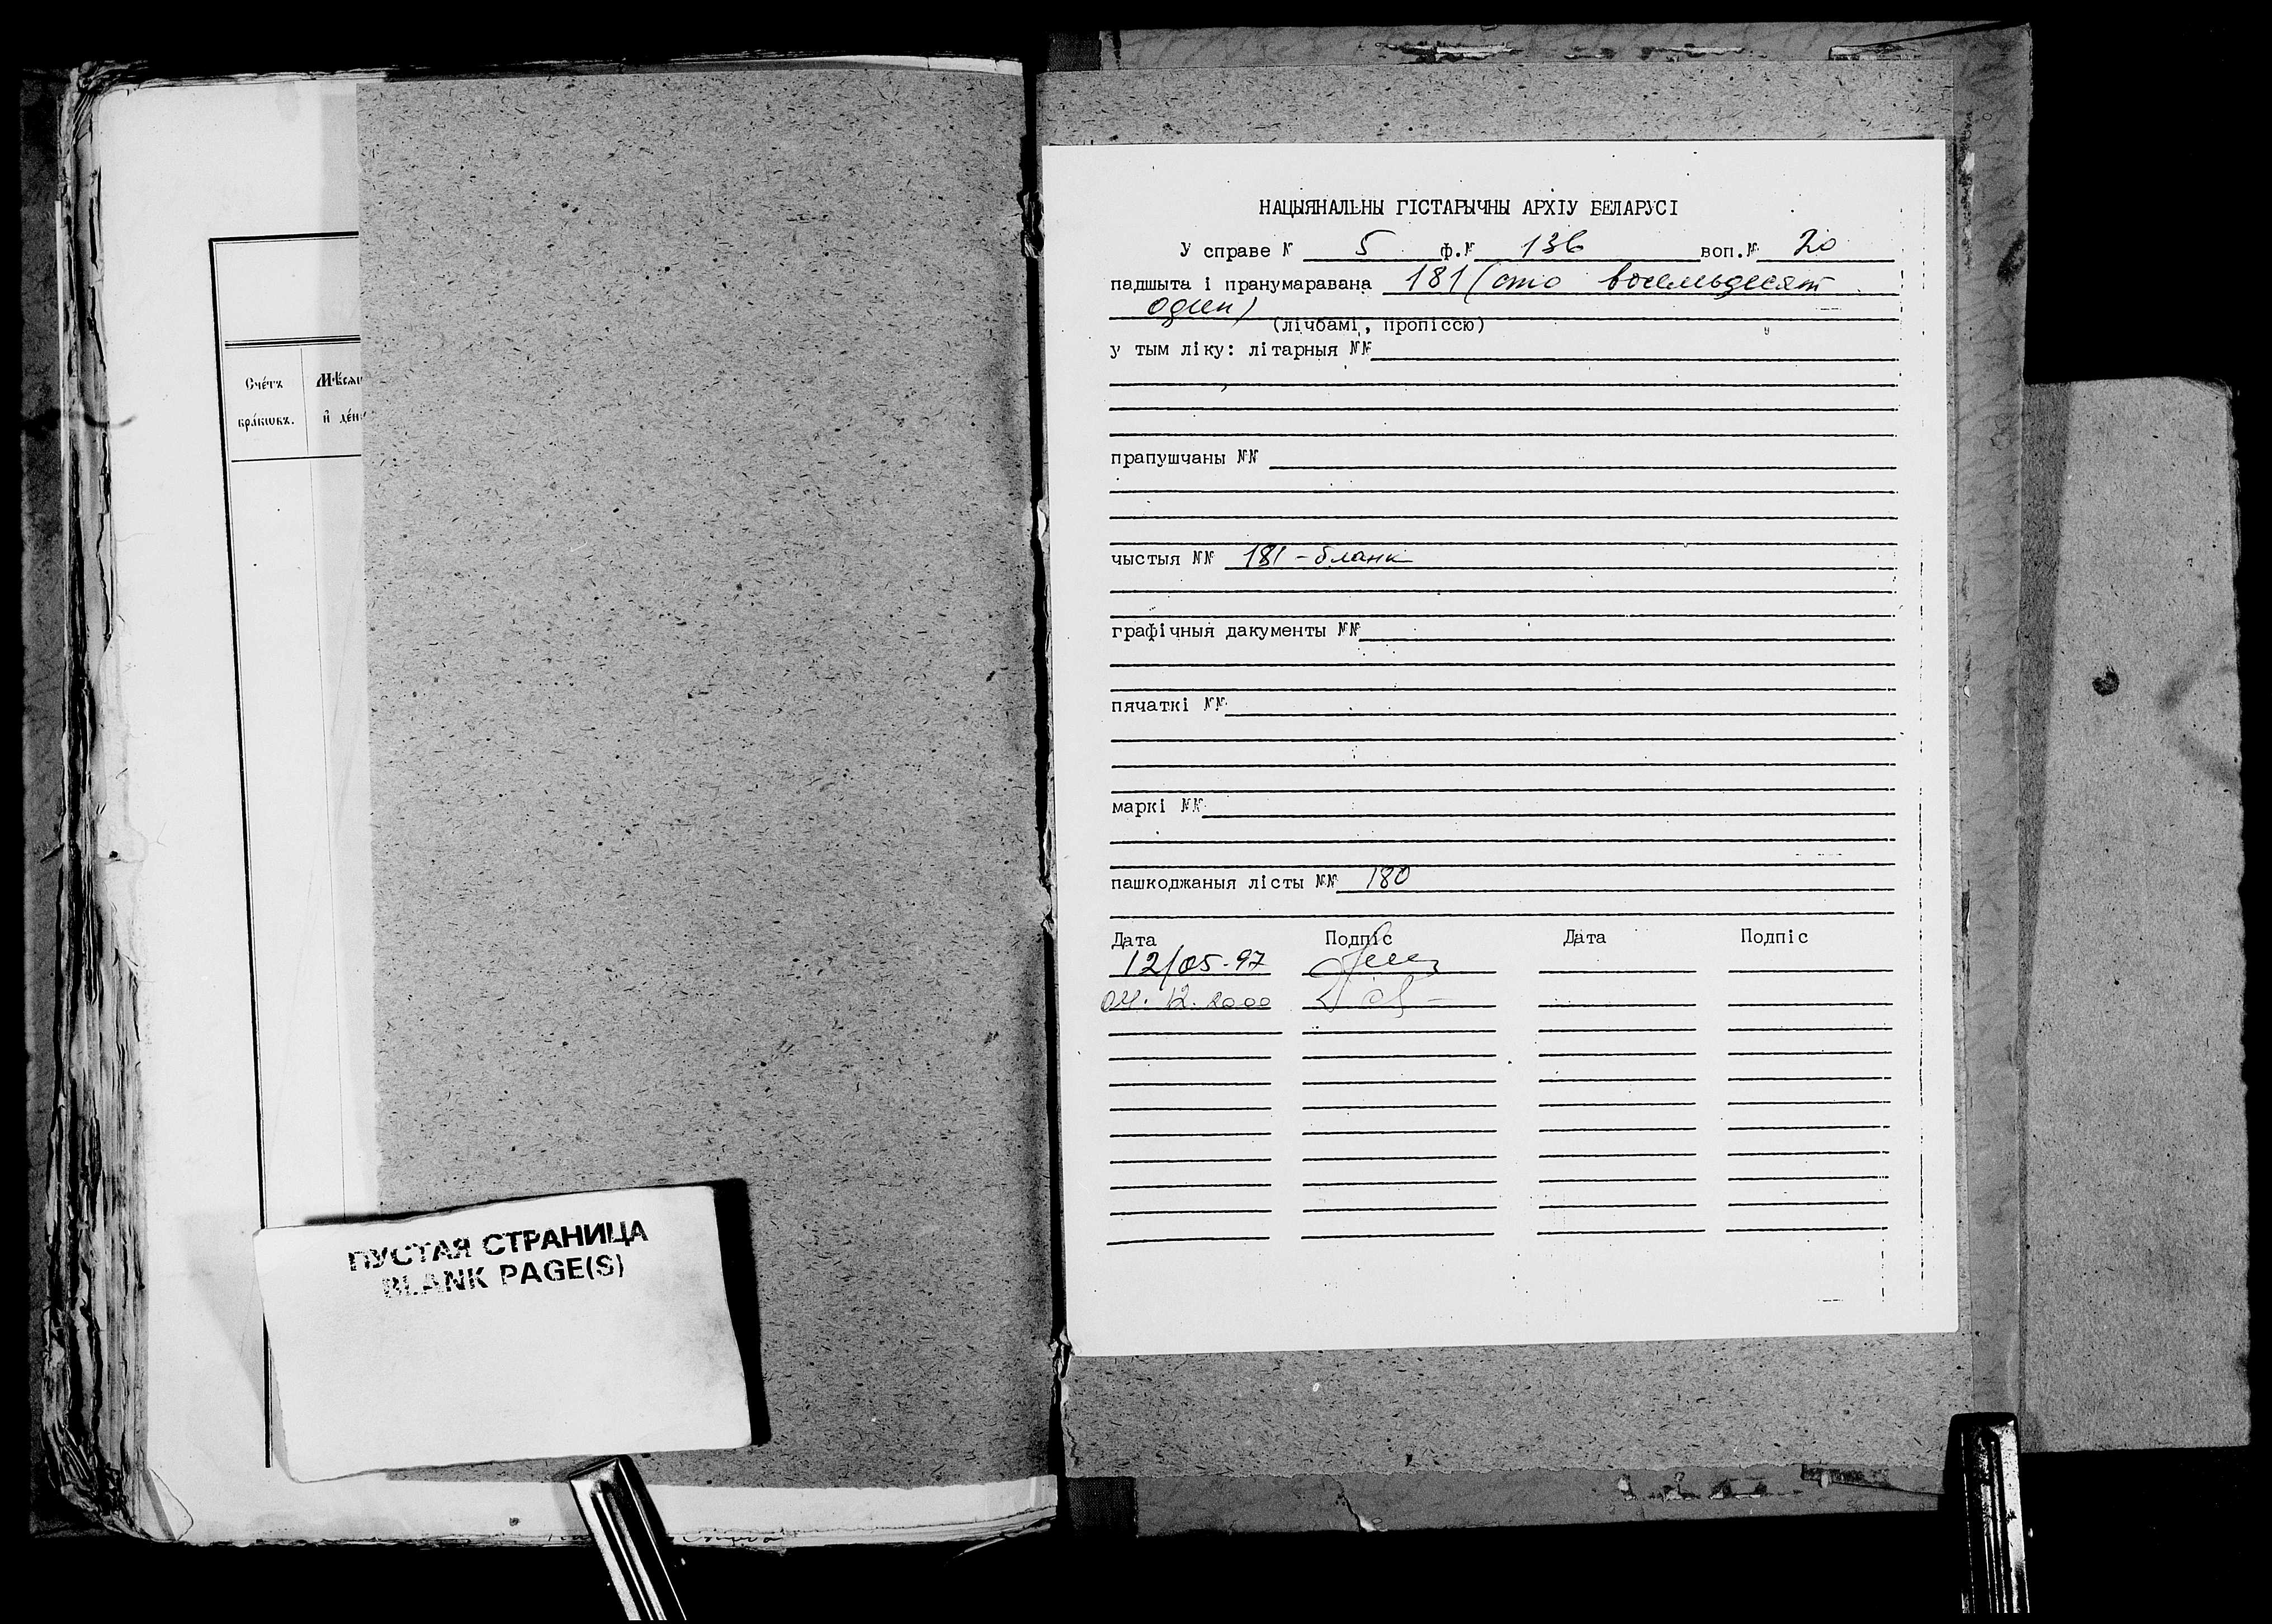 Сче́тъ
бра́кωвъ.
Мѣ́сяц
и҆ де́нь
ПУСТАЯ СТРАНИЦА
BLANK PAGE(S)
НАЦЫЯНАЛЬНЫ ГІСТАРЫЧНЫ АРХІУ БЕЛАРУСІ
У справе № 5 ф.№ 136 воп.№ 20
падшыта і пранумаравана 181 (сто восемьдесят
один)
(лічбамі, пропіссю)
у тым ліку: літарныя №№
прапушчаны №№
чыстыя №№ 181 - бланк
графічныя дакументы №№
пячаткі №№
маркі №№
пашкоджаныя лісты №№ 180
Дата Подпіс Дата Подпіс
12/05-97
04. 12. 2000